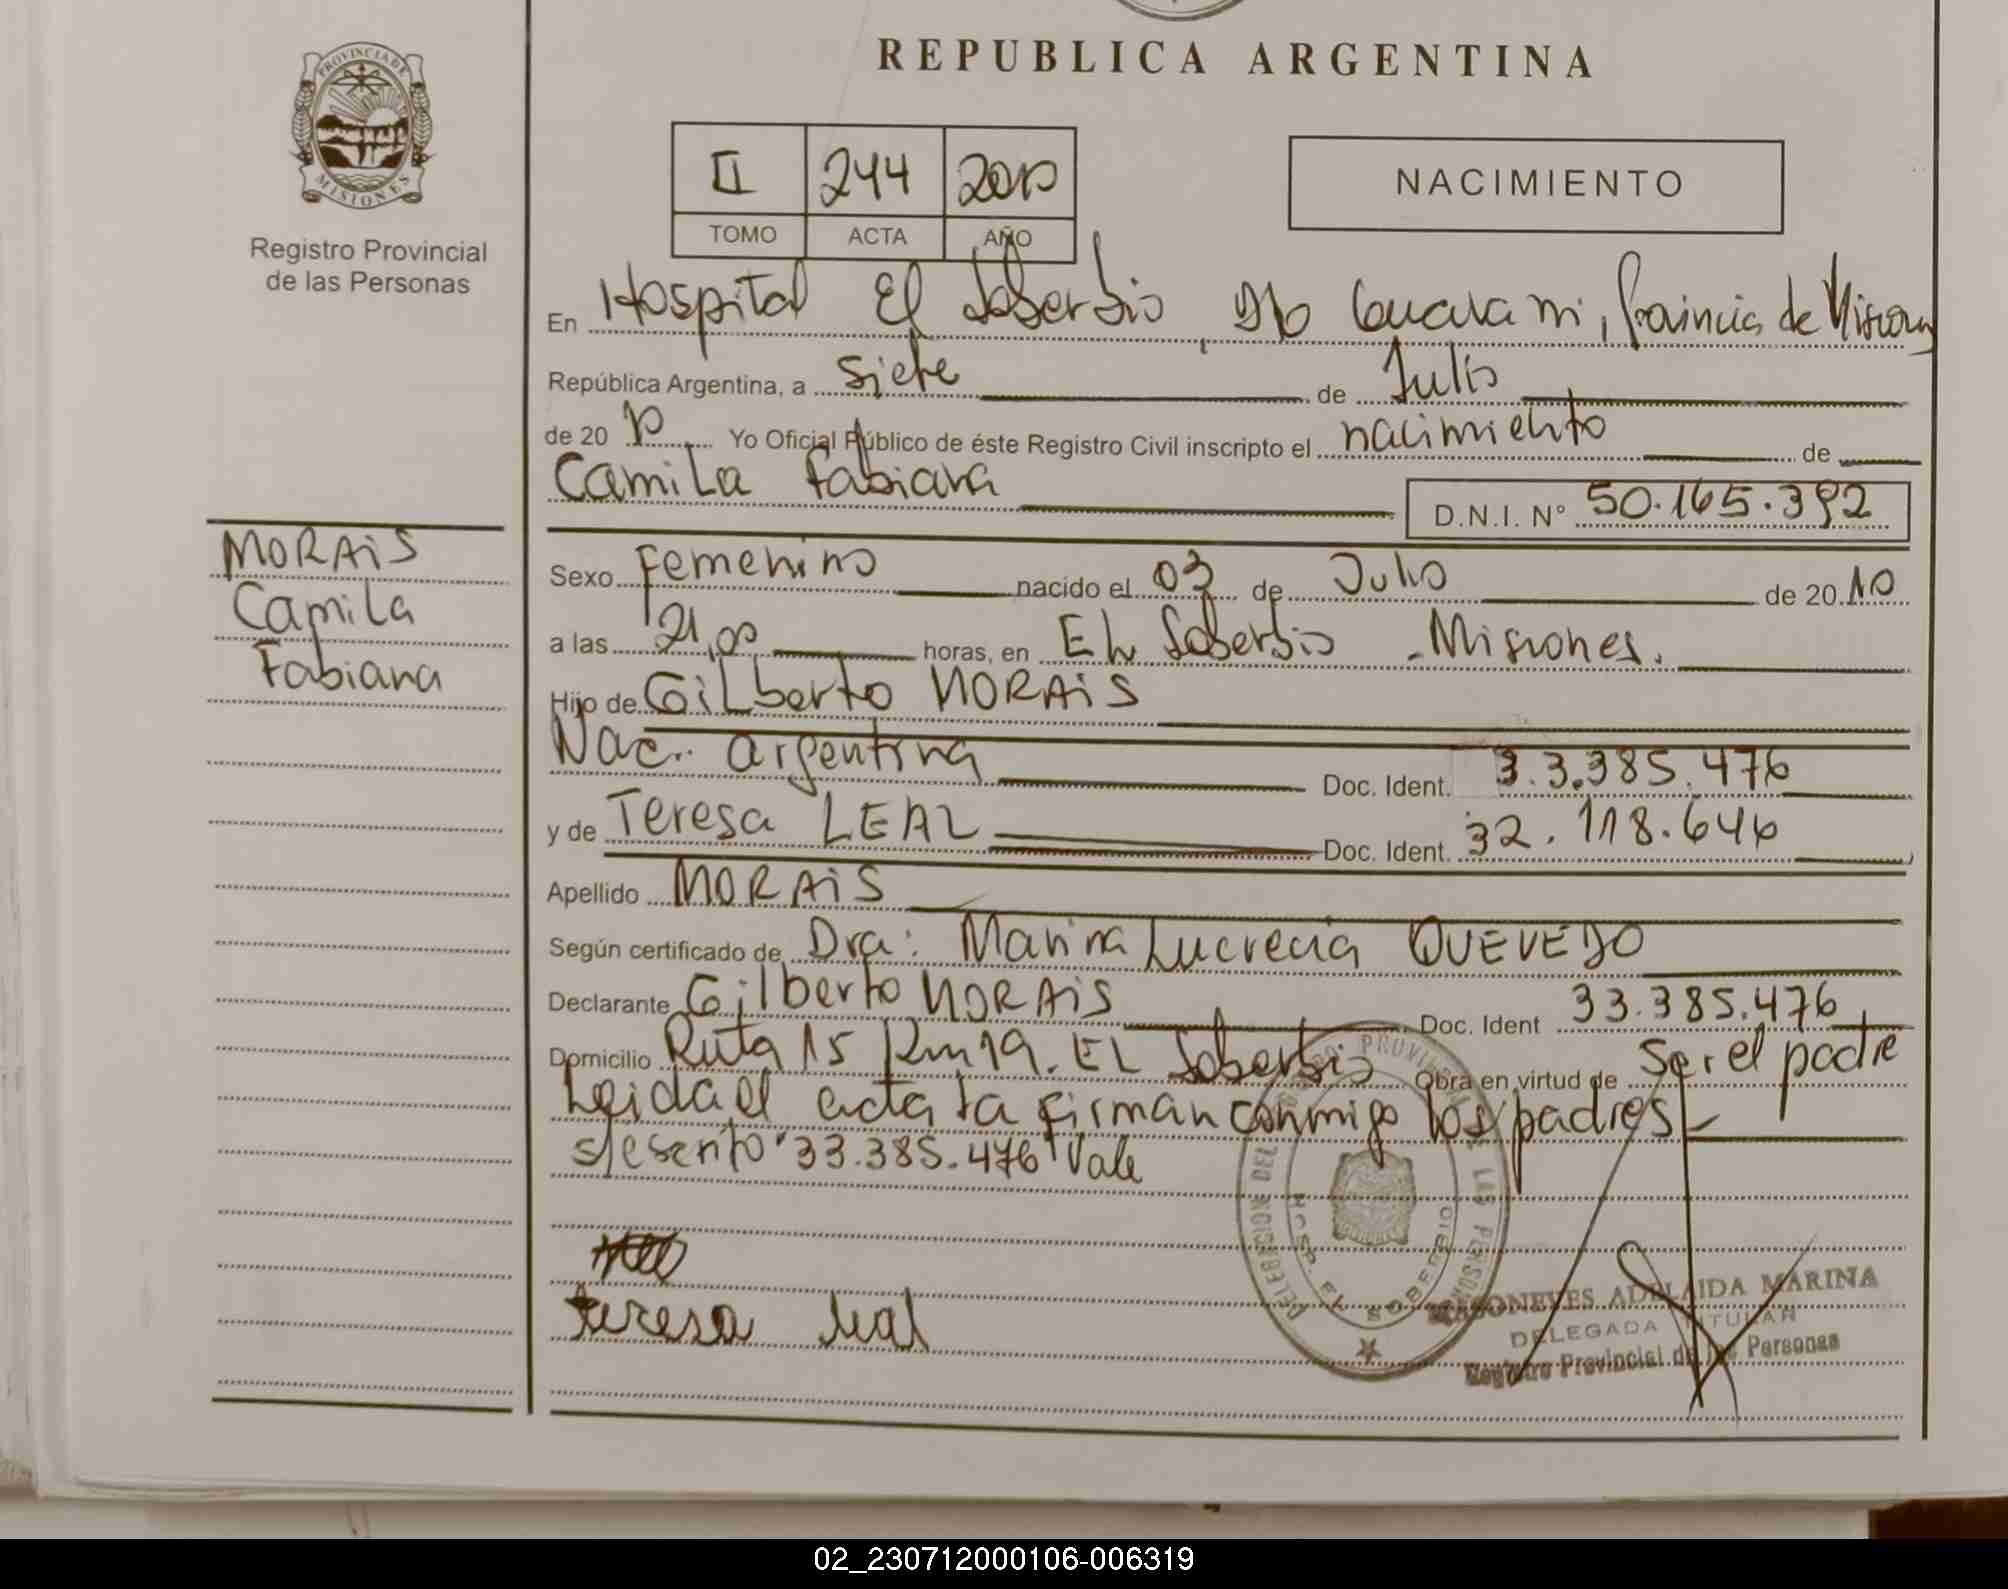 REPUBLICA ARGENTINA
PROVINCIA DE MISIONES
Registro Provincial
de las Personas
II 244 2010
TOMO ACTA AÑO
NACIMIENTO
En Hospital El Soberbio, Dto Guarani, Provincia de Misiones
República Argentina, a siete de Julio
de 20 10 Yo Oficial Público de éste Registro Civil inscripto el nacimiento de
Camila Fabiana
D.N.I. N° 50.165.392
MORAIS
Camila
Fabiana
Sexo Femenino nacido el 03 de Julio de 20 10
a las 21,00 horas, en El Soberbio - Misiones.
Hijo de Gilberto MORAIS
Nac. argentina Doc. Ident. 33.385.476
y de Teresa LEAL Doc. Ident. 32.118.646
Apellido MORAIS
Según certificado de Dra: Marina Lucrecia QUEVEDO
Declarante Gilberto MORAIS Doc. Ident 33.385.476
Domicilio Ruta 15 Km 19. EL Soberbio Obra en virtud de Ser el padre
Leida el acta la firman conmigo los padres
33.385.476 Vale
Teresa Leal
HOSP. EL SOBERBIO
ADELAIDA MARINA
DELEGADA TITULAR
Registro Provincial de las Personas
02_230712000106-006319